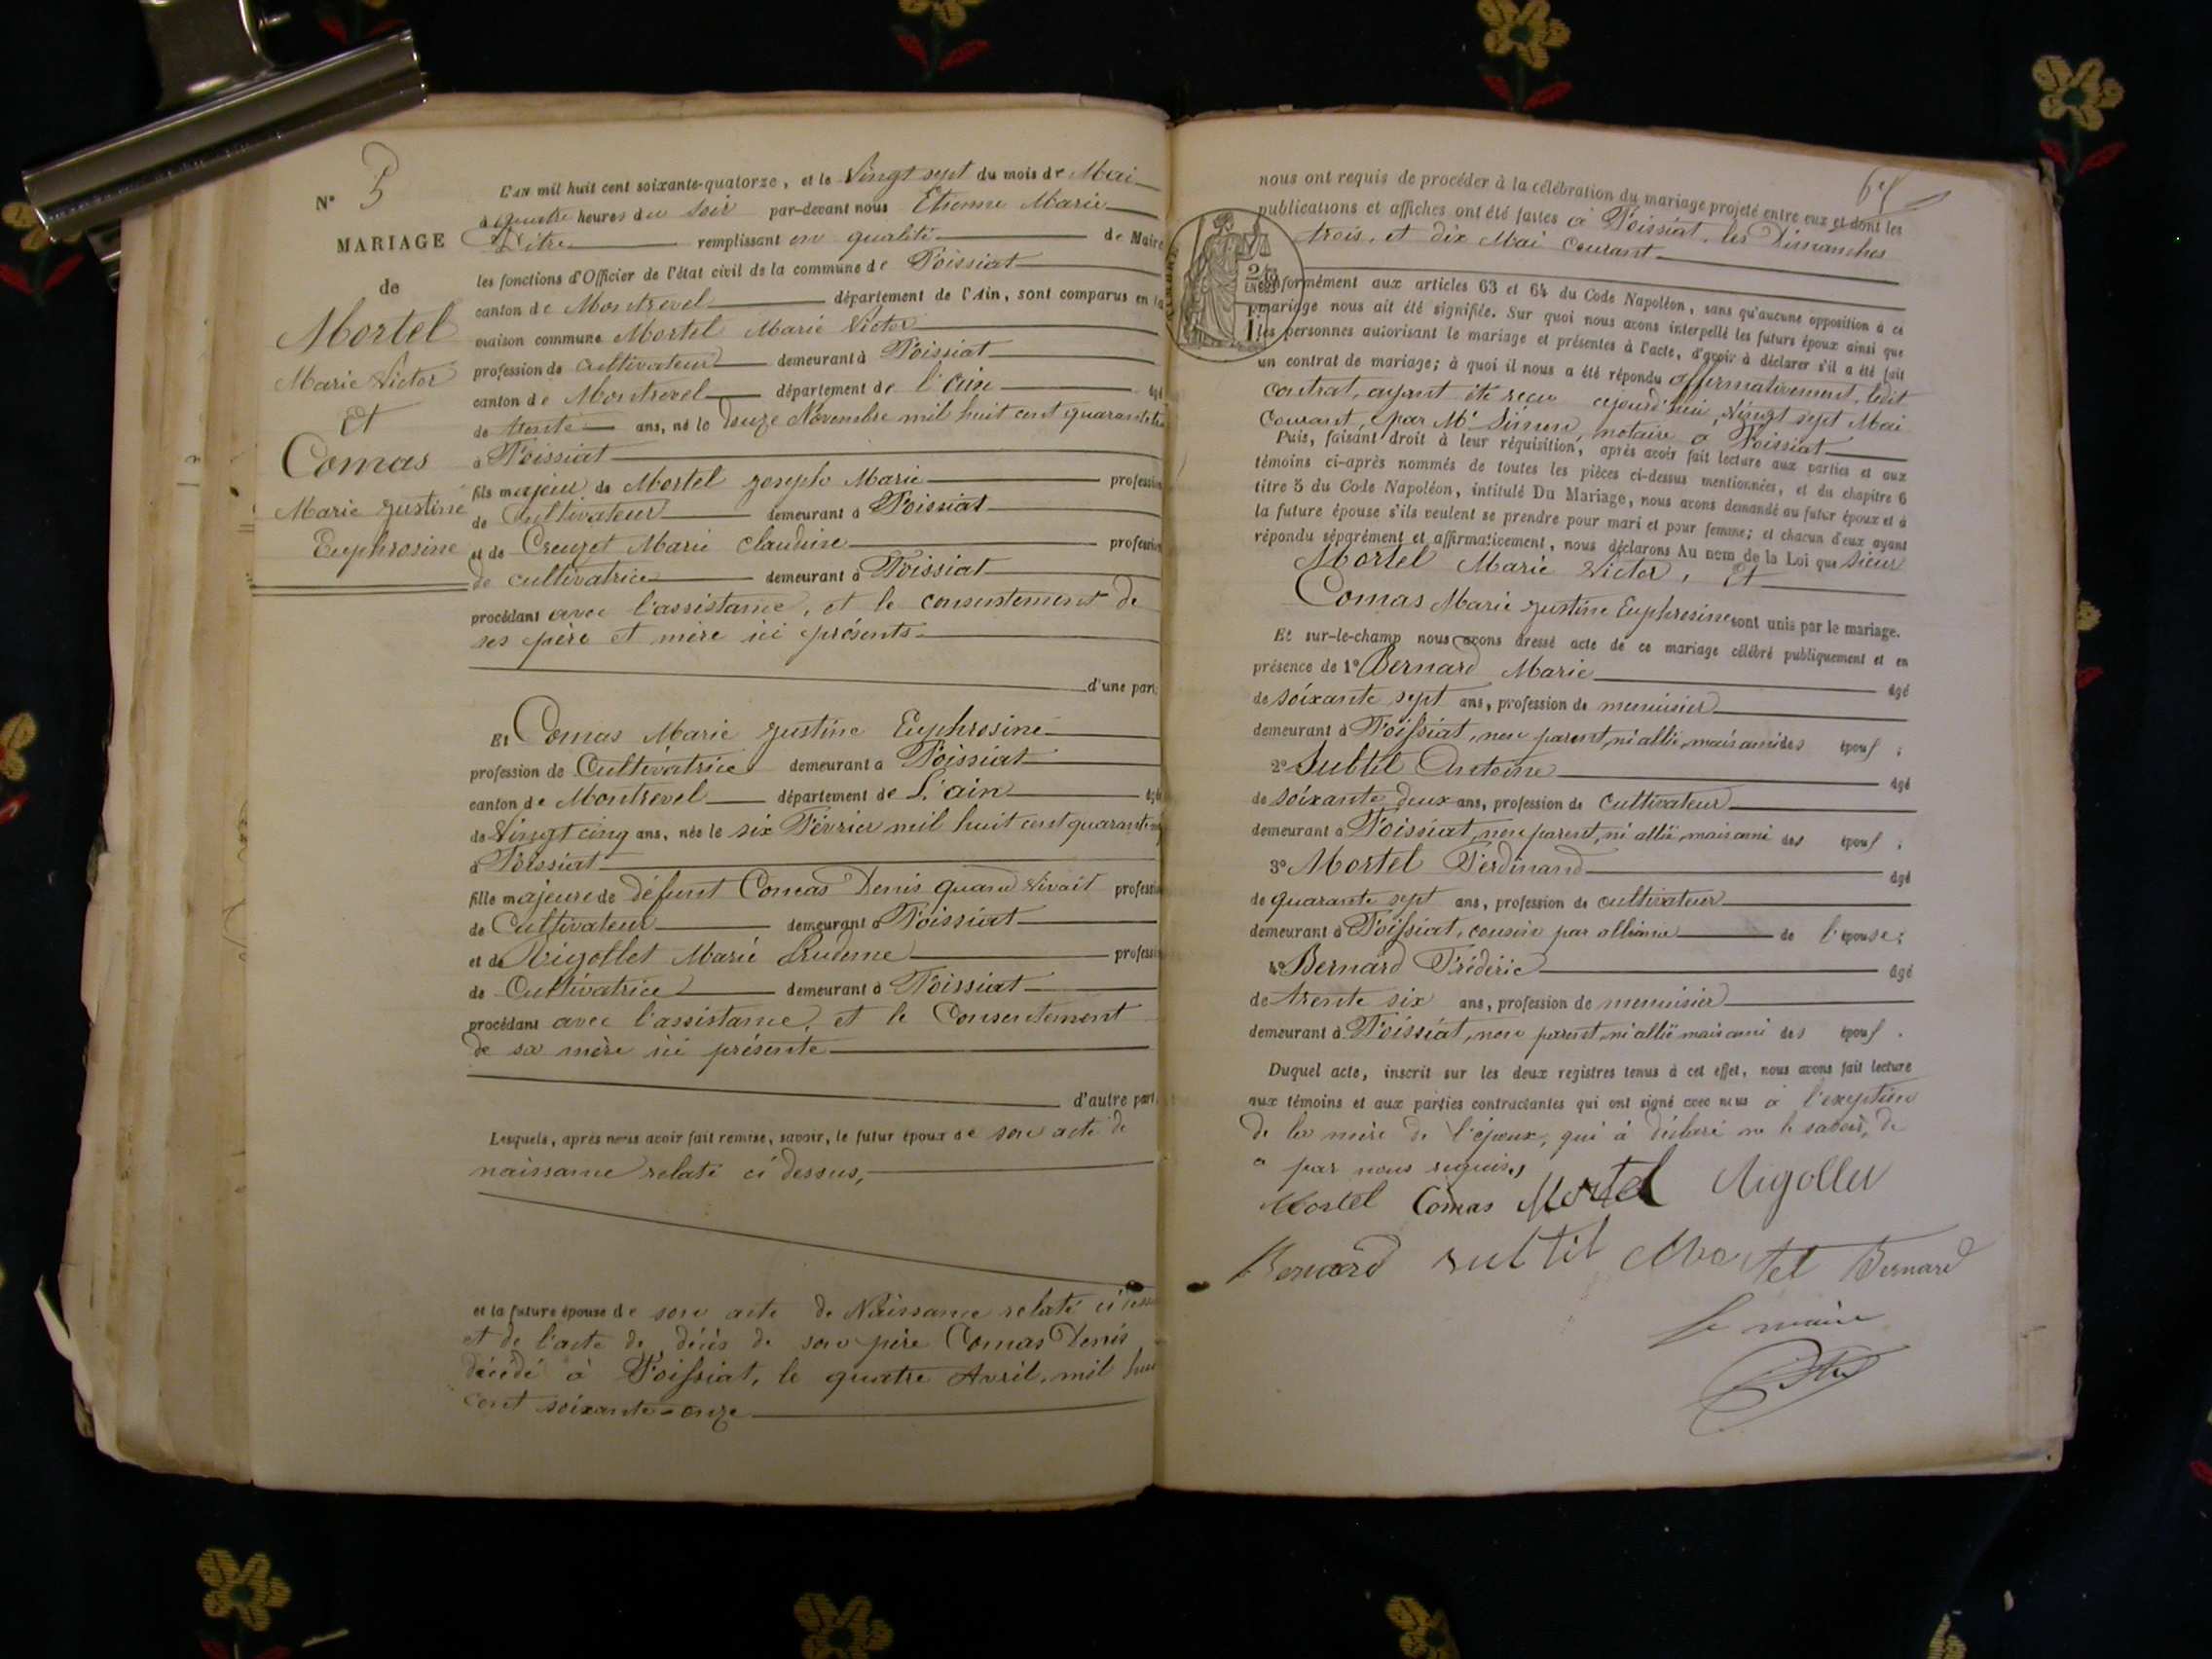 N° 5
MARIAGE
de
Mortel
Marie Victor
Et
Comas
Marie Justine
Euphrosine
L'AN mil huit cent soixante-quatorze, et le Vingt sept du mois de Mai
à quatre heures du soir par-devant nous Etienne Marie
remplissant en qualité de Maire
les fonctions d'Officier de l'état civil de la commune de Foissiat
canton de Montrevel département de l'Ain, sont comparus en la
maison commune Mortel Marie Victor
profession de cultivateur demeurant à Foissiat
canton de Montrevel département de l'ain âgé
de trente ans, né le douze Novembre mil huit cent quarante
à Foissiat
fils majeur de Mortel Joseph Marie profession
de Cultivateur demeurant à Foissiat
et de Creuzet Marie Claudine profession
de cultivatrice demeurant à Foissiat
procédant avec l'assistance, et le consentement de
ses père et mère ici présents
d'une part;
Et Comas Marie Justine Euphrosine
profession de Cultivatrice demeurant à Foissiat
canton de Montrevel département de L'ain âgée
de Vingt cinq ans, née le six Février mil huit cent quarante
à Foissiat
fille majeure de défunt Comas Denis quand vivait profession
de Cultivateur demeurant à Foissiat
et de Rigollet Marie Prudence profession
de Cultivatrice demeurant à Foissiat
procédant avec l'assistance, et le Consentement
de sa mère ici présente
d'autre part.
Lesquels, après nous avoir fait remise, savoir, le futur époux de son acte de
naissance relaté ci dessus,
et la future épouse de son acte de Naissance relaté ci dessus
et de l'acte de décès de son père Comas Denis
décédé à Foissiat, le quatre Avril, mil huit
cent soixante-onze
nous ont requis de procéder à la célébration du mariage projeté entre eux et dont les
publications et affiches ont été faites à Foissiat, les Dimanches
trois, et dix Mai courant
conformément aux articles 63 et 64 du Code Napoléon, sans qu'aucune opposition à ce
mariage nous ait été signifiée. Sur quoi nous avons interpellé les futurs époux ainsi que
les personnes autorisant le mariage et présentes à l'acte, d'avoir à déclarer s'il a été fait
un contrat de mariage; à quoi il nous a été répondu affirmativement, ledit
contrat, ayant été reçu aujourd'hui, Vingt sept Mai
Courant, par Me Simon, notaire à Foissiat
Puis, faisant droit à leur réquisition, après avoir fait lecture aux parties et aux
témoins ci-après nommés de toutes les pièces ci-dessus mentionnées, et du chapitre 6
titre 5 du Code Napoléon, intitulé Du Mariage, nous avons demandé au futur époux et à
la future épouse s'ils veulent se prendre pour mari et pour femme; et chacun d'eux ayant
répondu séparément et affirmativement, nous déclarons Au nom de la Loi que Sieur
Mortel Marie Victor, Et
Comas Marie Justine Euphrosine sont unis par le mariage.
Et sur-le-champ nous avons dressé acte de ce mariage célébré publiquement et en
présence de 1° Bernard Marie âgé
de soixante sept ans, profession de menuisier
demeurant à Foissiat, non parent, ni allié, mais ami des époux;
2° Subtil Antoine âgé
de soixante deux ans, profession de cultivateur
demeurant à Foissiat, non parent, ni allié, mais ami des époux;
3° Mortel Ferdinand âgé
de quarante sept ans, profession de cultivateur
demeurant à Foissiat, cousin par alliance de l'épouse;
4° Bernard Frédéric âgé
de trente six ans, profession de menuisier
demeurant à Foissiat, non parent, ni allié mais ami des époux.
Duquel acte, inscrit sur les deux registres tenus à cet effet, nous avons fait lecture
aux témoins et aux parties contractantes qui ont signé avec nous à l'exeption
de la mère de l'époux, qui a déclaré ne le savoir, de
ce par nous requise,
Mortel Comas Mortel Rigollet
Bernard Subtil Mortel Bernard
le maire